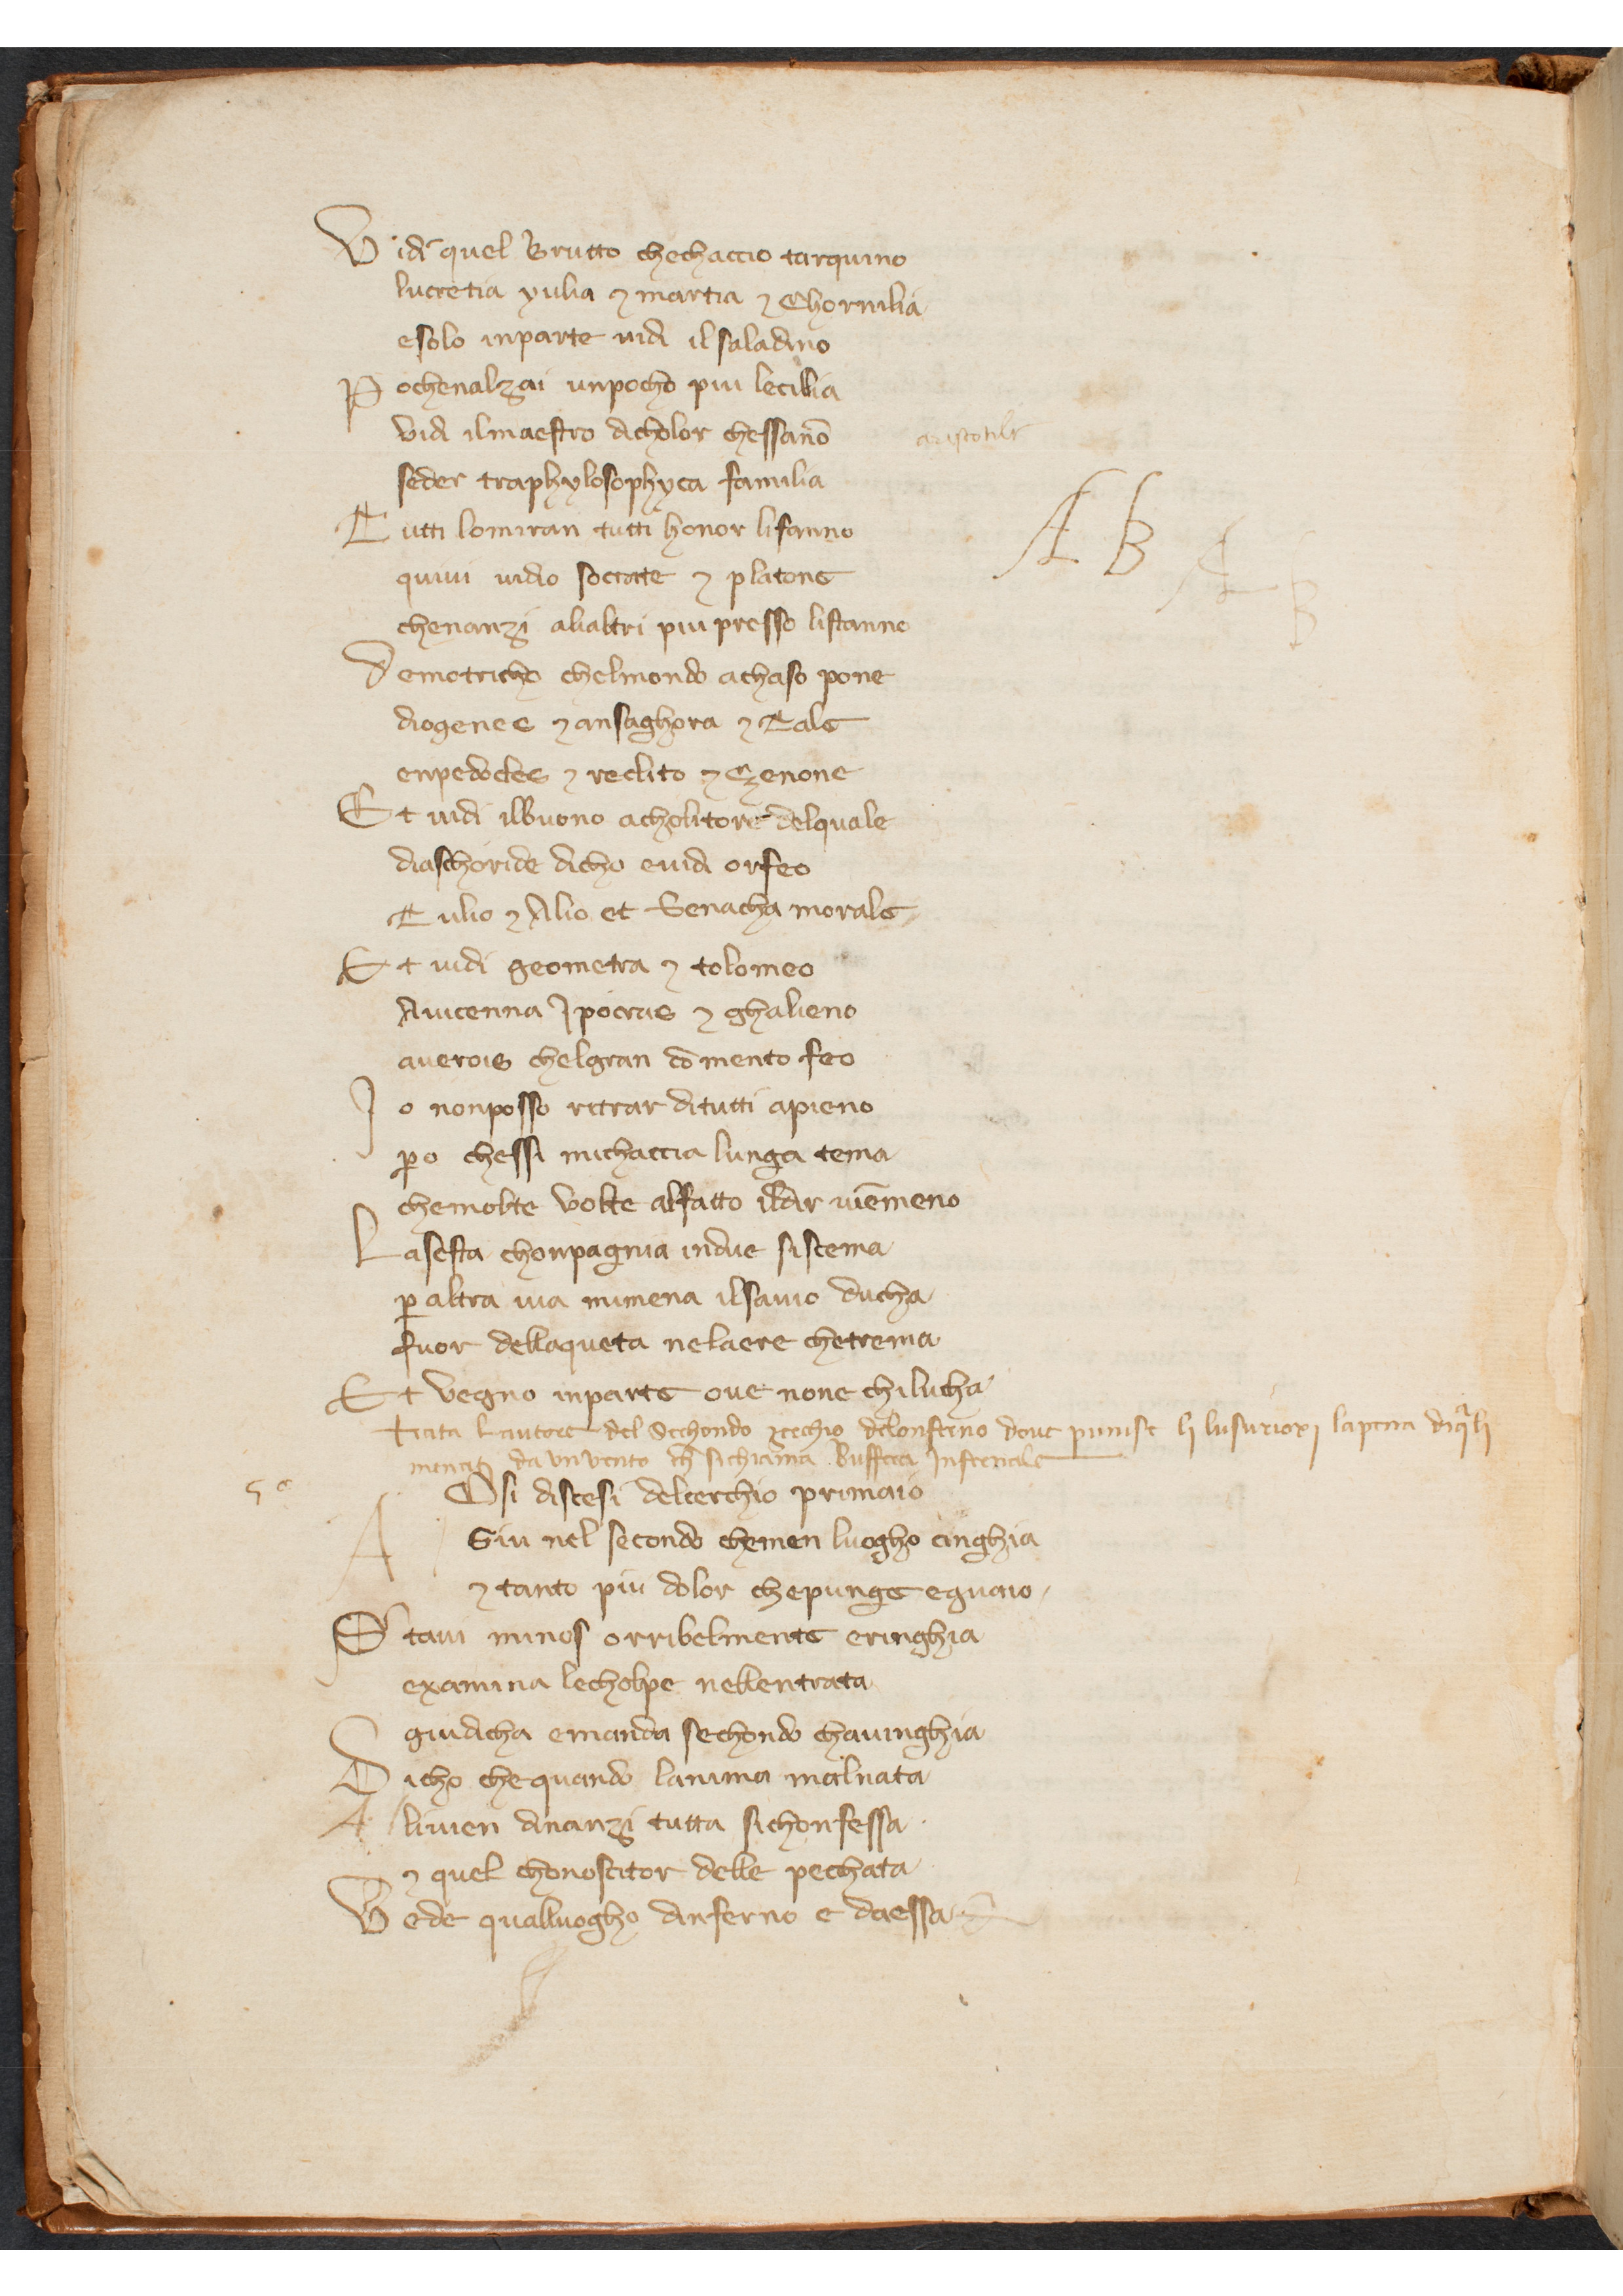 Vidi quel Brutto chechaccio tarquino
lucretia yulia ⁊ martia ⁊ Chornilia
esolo inparte uidi ilsaladino
Pochenalzai unpocho piu lecilia
vidi ilmaestro dicholor chessanō aristotile
seder traphylosophyca familia
Tutti lomiran tutti honor lifanno
quiui uidio socrate ⁊ platone
A B A B
chenanzi alialtri piu presso listanno
Demotricho chelmondo achaso pone
diogenes ⁊ ansaghora ⁊ Tale
enpedocles ⁊ reclito ⁊ Zenone
Et uidi ilbuono acholitore delquale
diaschoride dicho euidi orfeo
Tulio ⁊ Alio et Senacha morale
Et uidi geometra ⁊ tolomeo
Auicenna Ipocras ⁊ ghalieno
auerois chelgran cōmento feo
Io nonposso ritrar ditutti apieno
ꝑo chessi michaccia lunga tema
chemolte volte alfatto ildir uiēmeno
Lasesta chonpagnia indue siscema
ꝑ altra uia mimena ilsauio ducha
fuor dellaqueta nelaere chetrema
Et vegno inparte oue none chilucha
trata lautore del sechondo cerchio delonferno doue punise li lusurioxi lapena diq̄li
menati da vn vento ch̄ sichiama buffera Infernale
5°
Osi discesi delcerchio primaio
A Giu nel secondo chemen luogho cinghia
⁊ tanto piu dolor chepunge eguaio
Staui minos orribelmente eringhia
examina lecholpe nellentrata
giudicha emanda sechondo chauinghia
Dicho chequando lanima malnata
A liuien dinanzi tutta sichonfessa
⁊ quel chonoscitor delle pechata
Vede qualluogho dinferno e daessa